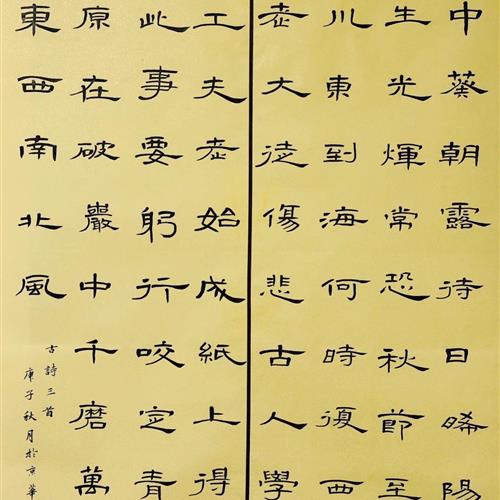 中葵朝露待日晞陽
生光煇常恐秋節至
川東到海何時復西
老大徒傷悲古人學
工夫老始成紙上得
此事要躬行咬定青
原在破巖中千磨萬
東西南北風
古詩三首
庚子秋月於京華